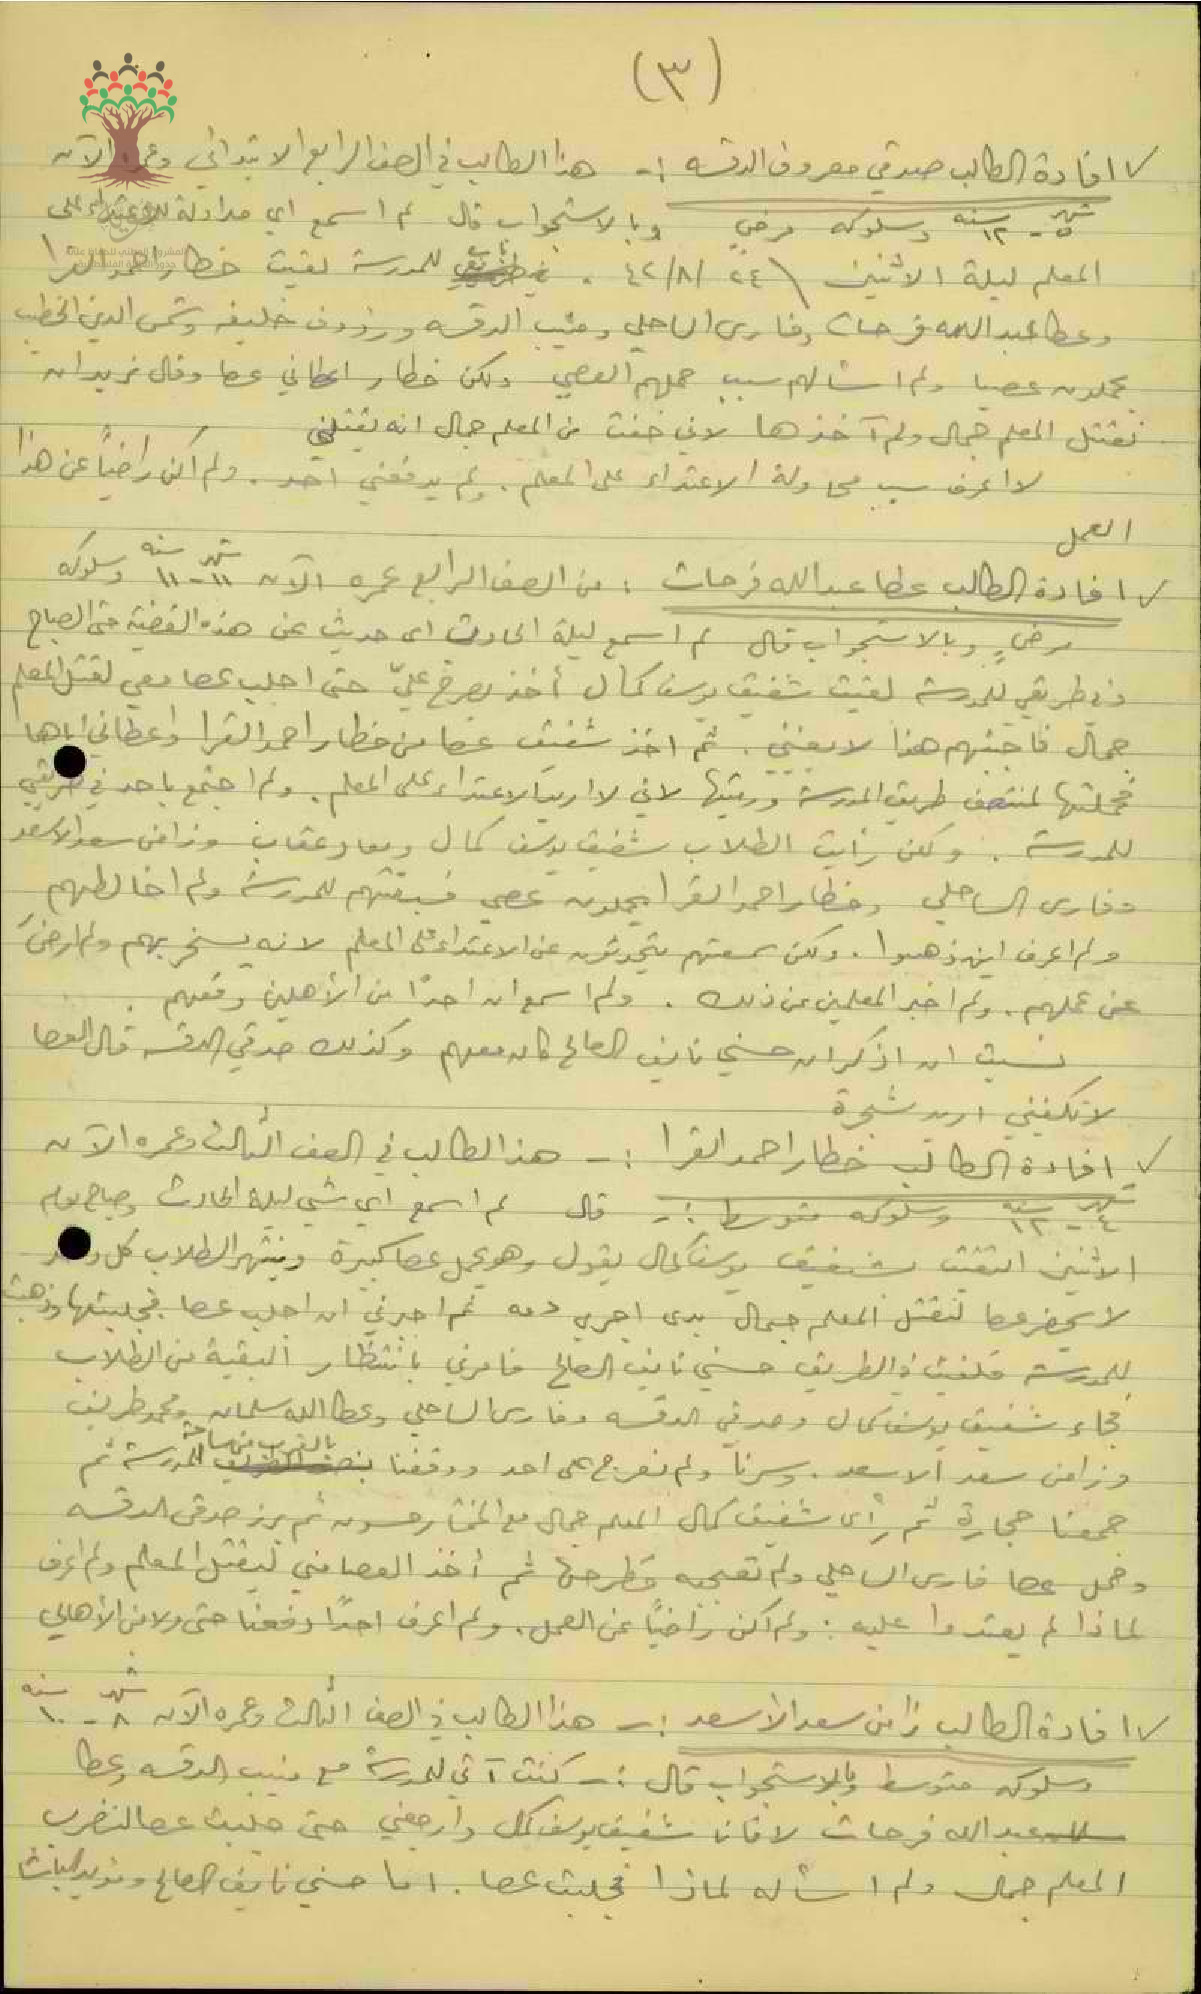 (٣)
افادة الطالب صدقي معروف الدقسه :- هذا الطالب في الصف الرابع الابتدائي وعمره الآن
شهر ٥ - سنه ١٢ وسلوكه مرضي وبالاستجواب قال لم اسمع اي مداولة للاعتداء على
المعلم ليلة الاثنين ٢٤ /٨/ ٤٢ . للمدرسة لقيت خطار احمد القرا
وعطا عبدالله فرحات وفارس الساحلي ومنيب الدقسه ورؤوف خليفه وشمس الدين الخطيب
يحملون عصيا ولم اسألهم سبب حملهم العصي ولكن خطار اعطاني عصا وقال نريد ان
نقتل المعلم جمال ولم آخذها لاني خفت من المعلم جمال انه يقتلني
لا اعرف سبب محاولة الاعتداء على المعلم . ولم يدفعني احد . ولم اكن راضياً عن هذا
العمل
افادة الطالب عطا عبدالله فرحات : من الصف الرابع عمره الآن شهر ١١ - سنه ١١ وسلوكه
مرضي وبالاستجواب قال لم اسمع ليلة الحادث اي حديث عن هذه القضية حتى الصباح
وفي طريقي للمدرسة لقيت شفيق يوسف كمال أخذ يصرخ عليّ حتى اجلب عصا معي لقتل المعلم
جمال فاجبتهم هذا لا يعنيني . ثم اخذ شفيق عصا من خطار احمد القرا واعطاني اياها
فحملتها لمنتصف طريق المدرسة ورميتها لاني لا اريد الاعتداء على المعلم . ولم اجتمع باحد في طريقي
للمدرسة . ولكن رأيت الطلاب شفيق يوسف كمال وسعاد عقاب وزامن سعد الاسعد
وفارس الساحلي وخطار احمد القرا يحملون عصي فسبقتهم للمدرسة ولم اخالطهم
ولم اعرف اين ذهبوا . ولكن سمعتهم يتحدثون عن الاعتداء على المعلم لانه يسخر بهم ولم ارضَ
عن عملهم . ولم اخبر المعلمين عن ذلك . ولم اسمع ان احدًا من الأهلين دفعهم .
نسيت ان اذكر ان حسني نايف الصالح كان معهم وكذلك صدقي الدقسه قال العصا
لا تكفيني اريد شجرة
افادة الطالب خطار احمد القرا :- هذا الطالب في الصف الثالث وعمره الآن
شهر ٤ - سنه ١٢ وسلوكه متوسط :- قال لم اسمع اي شي ليلة الحادث وصباح يوم
الاثنين التقيت بشفيق يوسف كمال يقول وهو يحمل عصا كبيرة وينتهر الطلاب كل واحد
لا يحضر عصا لنقتل المعلم جمال بدي اجري دمه ثم اجبرني ان اجلب عصا فجلبتها وذهبت
للمدرسة فلقيت في الطريق حسني نايف الصالح فامرني بانتظار البقية من الطلاب
فجاء شفيق يوسف كمال وصدقي الدقسه وفارس الساحلي وعطا الله سلمان ومحمد طريف
وزامن سعد الاسعد . وسرنا ولم نعرج على احد ووقفنا بالقرب من ساحة المدرسة ثم
جمعنا حجارة ثم رأى شفيق كمال المعلم جمال مع المختار حسون ثم برز صدقي الدقسه
وحمل عصا فارس الساحلي ولم تعجبه فطرحها ثم أخذ العصا مني ليقتل المعلم ولم اعرف
لماذا لم يعتدوا عليه : ولم اكن راضياً عن العمل . ولم اعرف احدًا دفعنا حتى ولا من الأهالي
افادة الطالب زامن سعد الأسعد :- هذا الطالب في الصف الثالث وعمره الآن شهر ٨ - سنه ١٠
وسلوكه متوسط وبالاستجواب قال :- كنت آتي للمدرسة مع منيب الدقسه وعطا
عبدالله فرحات لاقانا شفيق يوسف كمال وارجعني حتى جلبت عصا لنضرب
المعلم جمال ولم اسأله لماذا فجلبت عصا . اما حسني نايف الصالح